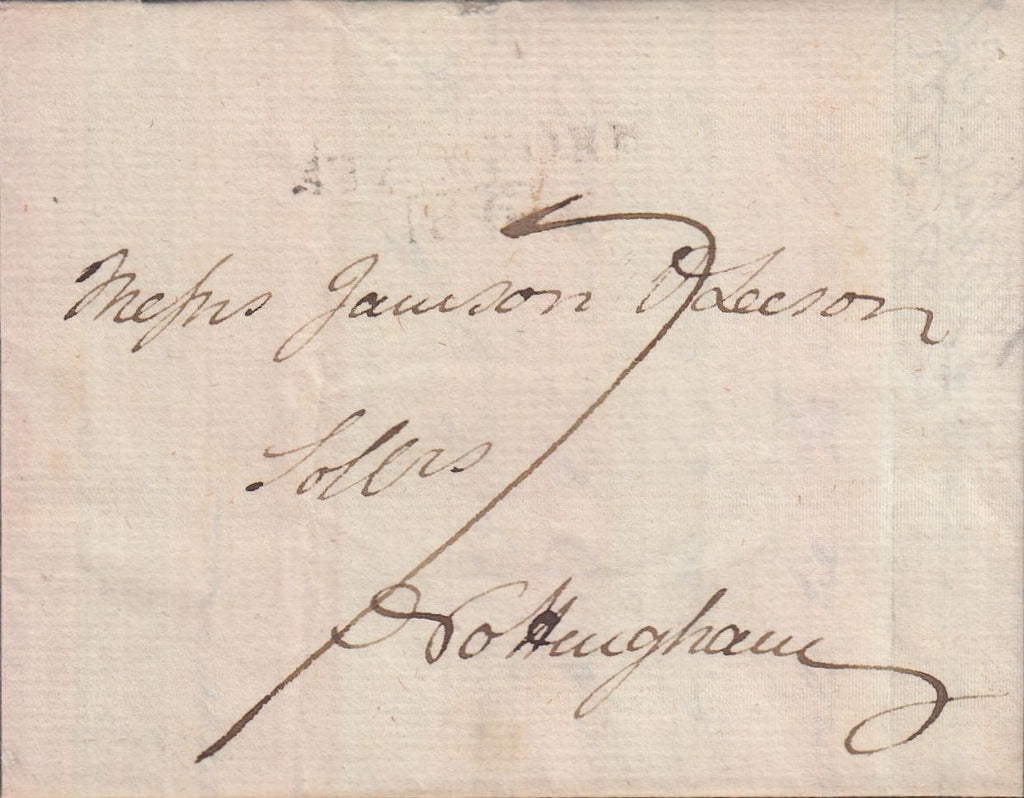 Messrs Jamson & Leeson
Sollrs
Nottingham
7